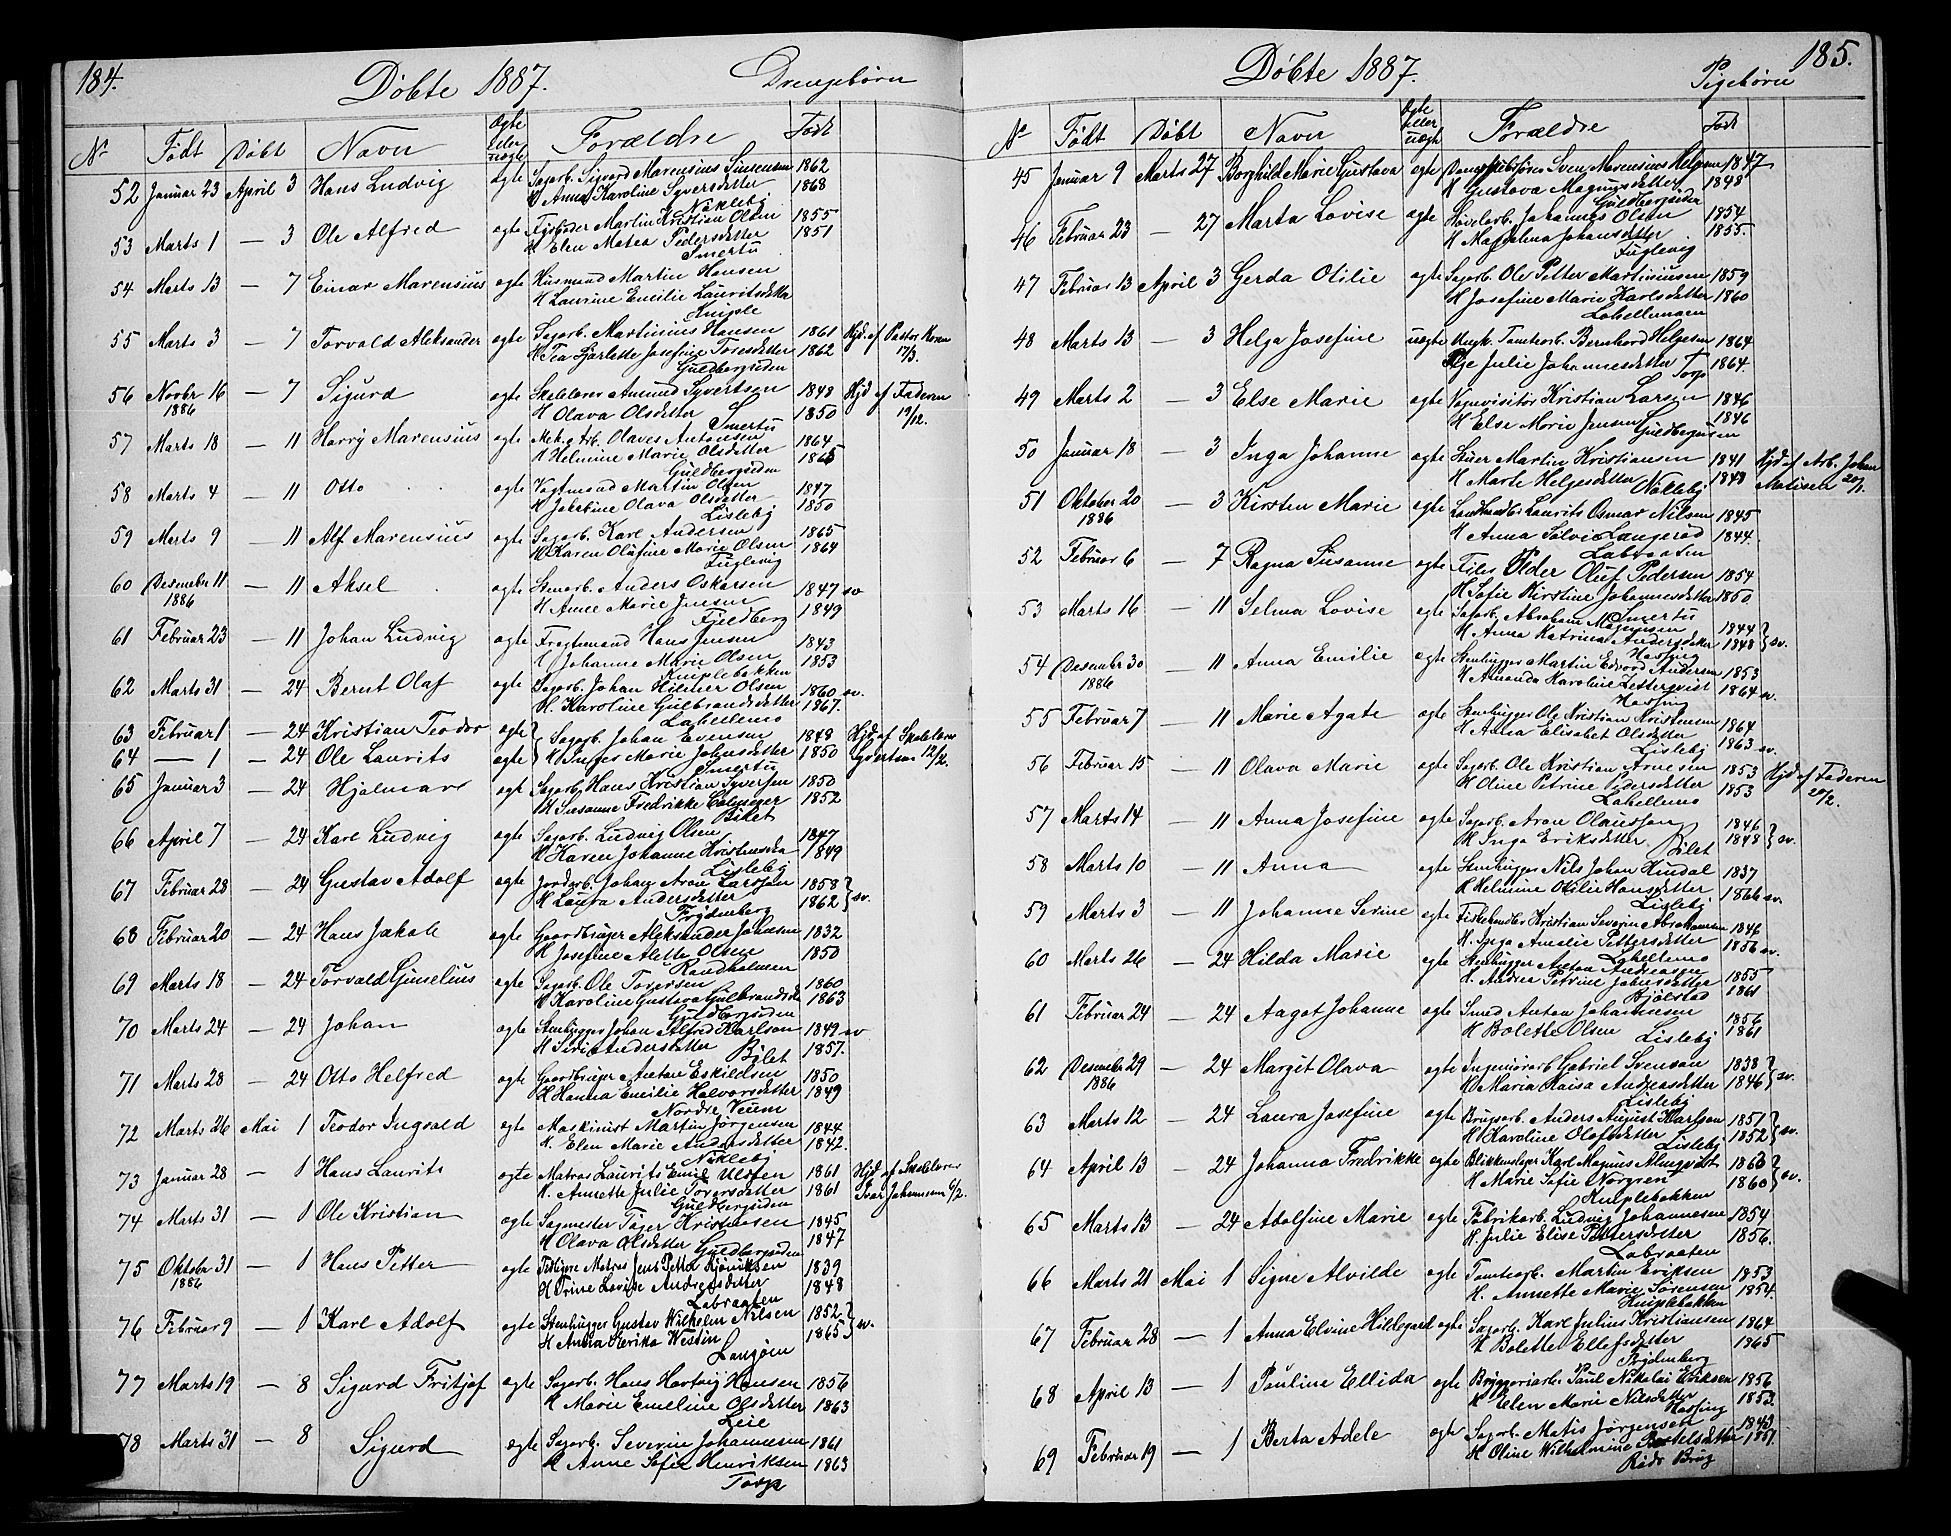 184.
Döbte 1887.
Drengebörn
No
Födt
Döbt
Navn
Ægte eller uægte
Forældre
Födt
52 Januar 23 April 3 Hans Ludvig ægte Sagarb. Sigvard Marensius Simensen 1862
H Anna Karoline Syversdatter 1868
Nökleby
53 Marts 1 — 3 Ole Alfred ægte Fyrböder Martin Kristian Olsen 1855
H Elen Matea Pedersdatter 1851
Smertu
54 Marts 13 — 7 Einar Marensius ægte Husmand Martin Hansen
H Laurine Emilie Lauritsdatter
Kniple
55 Marts 3 — 7 Torvald Aleksander ægte Sagarb. Martinius Hansen 1861 Hjd. af Pastor Koren
H Tea Josefine Toresdatter 1862 17/3.
Guldbergsiden
56 Novbr 16 — 7 Sigurd ægte Skolelærer Amund Syvertsen 1848 Hjd af Faderen
1886 H Olava Olsdatter 1850 19/12.
Smertu
57 Marts 18 — 11 Harry Marensius ægte Mek. Arb. Olaves Antonsen 1864
H Helmine Marie Olsdatter 1865
Guldbergsiden
58 Marts 4 — 11 Otto ægte Vagtmand Martin Olsen 1847
H Jakobine Olava Olsdatter 1850
Lisleby
59 Marts 9 — 11 Alf Marensius ægte Sagarb. Karl Andersen 1865
H Karen Olafine Marie Olsen 1864
Fuglevig
60 Desember 11 — 11 Aksel ægte Stenarb. Anders Oskarsen 1847 sv
1886 H Anne Marie Jensen 1849
Fjeldberg
61 Februar 23 — 11 Johan Ludvig ægte Fragtmand Hans Jensen 1843
H Johanne Marie Olsen 1853
Kniplebakken
62 Marts 31 — 24 Bernt Olaf ægte Sagarb. Johan Hilmer Olsen 1860 sv.
H. Karoline Gulbrandsdatter 1867.
Labellemo
63 Februar 1 — 24 Kristian Teodor ægte } Sagarb. Johan Evensen 1848 Hjd. af Skolelærer
64 — 1 — 24 Ole Laurits ægte H Inger Marie Johnsdatter 1850 Syvertsen 12/2.
Smertu
65 Januar 3 — 24 Hjalmar ægte Sagarb. Hans Kristian Syversen 1850
H Susanne Fredrikke 1852
Bilet
66 April 7 — 24 Karl Ludvig ægte Sagarb. Ludvig Olsen 1847
H Karen Johanne 1849
Lisleby
67 Februar 28 — 24 Gustav Adolf ægte Jordarb. Johan Aron Larsson 1858 }
H Laura Andersdatter 1862 } sv.
Frydenberg
68 Februar 20 — 24 Hans Jakob ægte Gaardbruger Aleksander Johnsen 1832
H Josefine Alette Olsen 1850
Randholmen
69 Marts 18 — 24 Torvald Ginselius ægte Sagarb. Ole Toversen 1860
H Karoline Gustava 1863
Guldbergsiden
70 Marts 24 — 24 Johan ægte Stenhugger Johan Alfred Karlson 1849 sv
H Andersdatter 1857.
Bilet
71 Marts 28 — 24 Otto Helfred ægte Gaardbruger Anton Eskildsen 1850
H Hanna Emilie Halvorsdatter 1849
Nordre Veum
72 Marts 26 Mai 1 Teodor Ingvald ægte Maskinist Martin Jörgensen 1844
H. Elen Marie Andersdatter 1842.
Nökleby
73 Januar 28 — 1 Hans Laurits ægte Matros Laurits Emil Ulsten 1861 Hjd af Skolelærer
H. Annette Julie Toversdatter 1861 Ivar Johnsen 6/2.
Guldbergsiden
74 Marts 31 — 1 Ole Kristian ægte Sagmester Töger Kristiansen 1845
H Olava Olsdatter Guldbergsiden 1847
75 Oktober 31 — 1 Hans Petter ægte Matros Jens Petter 1839
1886 H Trine Lovise Andreasdatter 1848
Labraaten
76 Februar 9 — 1 Karl Adolf ægte Stenhugger Gustav Wilhelm Nilsen 1852 }
H Anna Erika Westin 1865 } sv.
Langöen
77 Marts 19 — 8 Sigurd Fritjof ægte Sagarb. Hans Hartvig Hansen 1856
H Marie Emeline Olsdatter 1863
Leie
78 Marts 31 — 8 Sigurd ægte Sagarb. Severin Johannesen 1861
H Anne Sofie Henriksen 1863
Torp
185.
Döbte 1887.
Pigebörn
No
Födt
Döbt
Navn
Ægte eller uægte
Forældre
Födt
45 Januar 9 Marts 27 Borghild Marie Gustava ægte Sven Marensius Helgesen 1847
H Gustava Magnusdatter 1848
Guldbergsiden
46 Februar 23 — 27 Marta Lovise ægte Hövlarb. Johannes Olsen 1854
H Magdalena Johansdatter 1855.
Fuglevig
47 Februar 13 April 3 Gerda Otilie ægte Sagarb. Ole Petter Martiniusen 1859
H Josefine Marie Karlsdatter 1860
Labellemoen
48 Marts 13 — 3 Helga Josefine uægte Ungk. Tomtearb. Bernhard Helgesen 1864
Pige Julie Johannesdatter 1864.
Torp
49 Marts 2 — 3 Else Marie ægte Vognvisitör Kristian Larsen 1846
H Else Marie Jensen 1846
Guldbergsiden
50 Januar 18 — 3 Inga Johanne ægte Stuer Martin Kristiansen 1841 Hjd af Arb. Johan
H Marte Helgesdatter 1848 Matisen 20/1.
Nökleby
51 Oktober 20 — 3 Kirsten Marie ægte Landhandler Laurits Osmar Nilsen 1845
1886 H Anna Sölvia Langeröd 1844.
Labraaten
52 Februar 6 — 7 Ragna Susanne ægte Files Older Oluf Pedersen 1854
H Sofie Kirstine Johannesdatter 1850
Smertu
53 Marts 16 — 11 Selma Lovise ægte Sagarb. Abraham Magnusen 1844 }
H Anna Katrina Andersdatter 1848 } sv.
Hassing
54 Desember 30 — 11 Anna Emilie ægte Stenhugger Martin Edvard Andersen 1853
1886 H Amanda Karoline Zetterqvist 1864 sv.
Hassing
55 Februar 7 — 11 Marie Agate ægte Stenhugger Ole Kristian Kristensen 1864
H Anna Elisabet Olsdatter 1863 sv.
Lisleby
56 Februar 15 — 11 Olava Marie ægte Sagarb. Ole Kristian Arnesen 1853 Hjd af Faderen
H Oline Petrine Pedersdatter 1853 20/2.
Labellemo
57 Marts 14 — 11 Anna Josefine ægte Sagarb. Aron Olausson 1846 }
H Inga Eriksdatter 1848 } sv.
Bilet
58 Marts 10 — 11 Anna ægte Stenhugger Nils Johan Hindal 1837
H Helmine Otilie Hansdatter 1866 sv.
Lisleby
59 Marts 3 — 11 Johanne Severine ægte Fiskehandler Kristian Severin Abrahamsen 1846
H. Inga Amalie Pettersdatter 1856 sv.
Labellemo
60 Marts 26 — 24 Hilda Marie ægte Stenhugger Anton Andreasen 1855
H. Andrea Petrine Johnsdatter 1861
Bjölstad
61 Februar 24 — 24 Aagot Johanne ægte Smed Anton Johannesen 1856
H Bolette Olsen 1861
Lisleby
62 Desember 29 — 24 Margit Olava ægte Ingeniörarb Gabriel Svenson 1838 }
1886 H Maria Kaisa Andreasdatter 1846 } sv.
Lisleby
63 Marts 12 — 24 Laura Josefine ægte Brugsarb. Anders August Karlson 1851 }
H Karoline Olofsdatter 1852 } sv.
Lisleby
64 April 13 — 24 Johanna Fredrikke ægte Blikkenslager Karl Magnus Almqvist 1863 }
H Marie Sofie Norgren 1860 } sv.
Kniplebakken
65 Marts 13 — 24 Adolfine Marie ægte Fabrikarb. Ludvig Johannesen 1854
H. Julie Elise Pettersdatter 1856.
Labraaten
66 Marts 21 Mai 1 Signe Alvilde ægte Tomtearb. Martin Eriksen 1853
H. Annette Marie Sörensen 1854.
Kniplebakken
67 Februar 28 — 1 Anna Elvine Hildegard ægte Sagarb. Karl Julius Kristiansen 1864
H Bolette Ellefsdatter 1865
Frydenberg
68 April 13 — 1 Pauline Ellida ægte Bryggeriarb. Paul Nikolai Eriksen 1856
H Elen Marie Nilsdatter 1853.
Hassing
69 Februar 19 — 1 Berta Adele ægte Sagarb. Matis Jörgensen 1843
H Oline Wilhelmine Bertelsdatter 1851.
Röds Brug